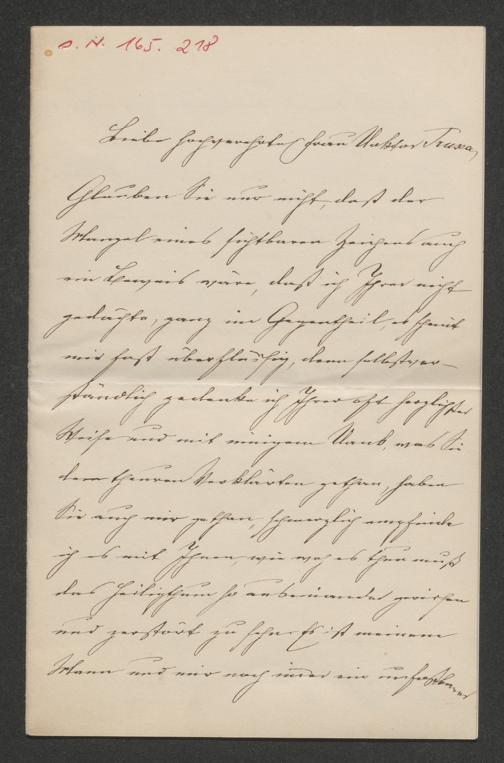 P. N. 165. 218
Liebe hochverehrte Frau Doktor Truxa,
Glauben Sie nur nicht, daß der
Mangel eines sichtbaren Zeichens auch
ein Beweis wäre, daß ich Ihrer nicht
gedächte, ganz im Gegentheil, es scheint
mir fast überflüssig, denn selbstver-
ständlich gedenke ich Ihrer oft herzlichster
Weise und mit innigem Dank, was Sie
dem theuren Verklärten gethan, haben
Sie auch mir gethan, schmerzlich empfinde
ich es mit Ihnen, wie weh es thun muß
das Heiligthum so auseinander gerissen
und zerstört zu sehn. Es ist meinem
Mann und mir noch immer ein unfaßbarer